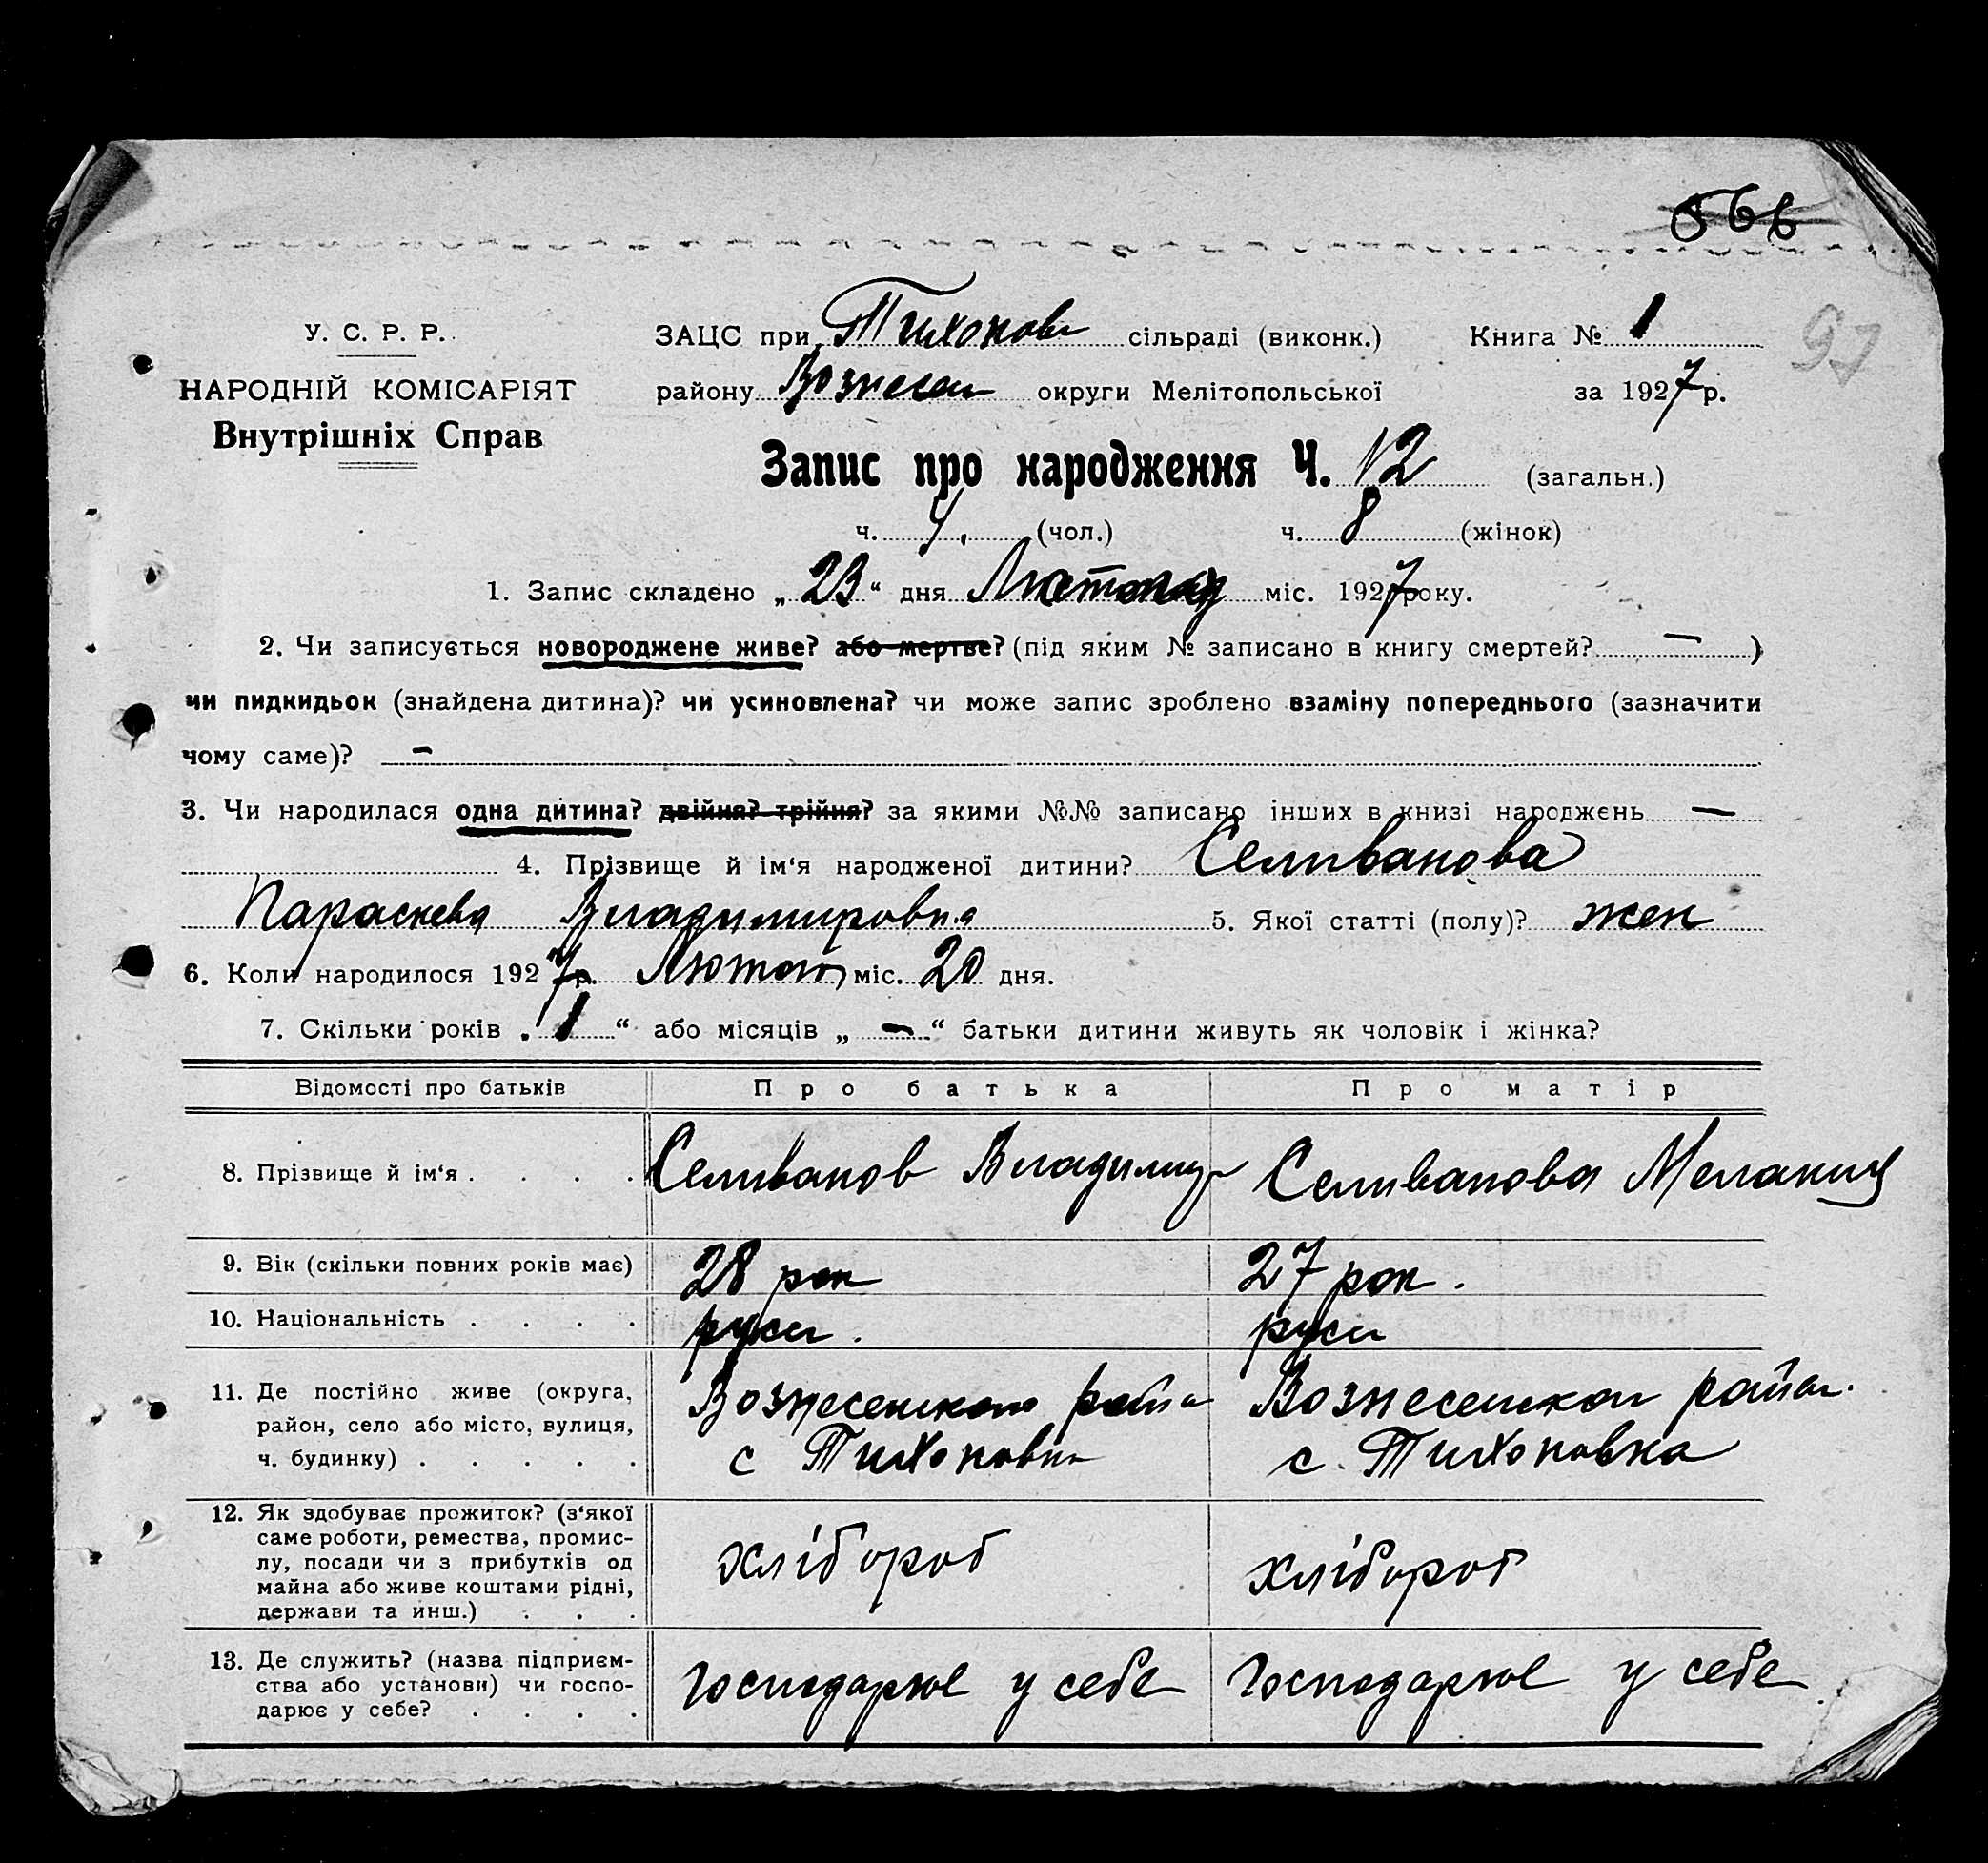 566
У. С. Р. Р.
НАРОДНІЙ КОМІСАРІЯТ
Внутрішніх Справ
ЗАЦС при Тихонов сільраді (виконк.) Книга № 1
97
району Вознесен округи Мелітопольської за 1927 р.
Запис про народження Ч. 12 (загальн.)
ч. 4. (чол.) ч. 8 (жінок)
1. Запис складено „23“ дня міс. 1927 року.
2. Чи записується новороджене живе? або мертве? (під яким № записано в книгу смертей? — )
чи пидкидьок (знайдена дитина)? чи усиновлена? чи може запис зроблено взаміну попереднього (зазначити
чому саме)? –
3. Чи народилася одна дитина? двійня? трійня? за якими №№ записано інших в книзі народжень —
4. Прізвище й ім‘я народженої дитини? Селиванова
Параскева Владимировна 5. Якої статті (полу)? жен
6. Коли народилося 1927 р. Лютого міс. 20 дня.
7. Скільки років „1“ або місяців „–“ батьки дитини живуть як чоловік і жінка?
Відомості про батьків Про батька Про матір
8. Прізвище й ім‘я . . . . Селиванов Владимир Селиванова Мелания
9. Вік (скільки повних років має) 28 рок 27 рок.
10. Національність . . . . руск. руск
11. Де постійно живе (округа,
район, село або місто, вулиця,
ч. будинку) . . . . .
Вознесенского район
с Тихоновка
Вознесенског район.
с. Тихоновка
12. Як здобуває прожиток? (з‘якої
саме роботи, ремества, промис-
лу, посади чи з прибутків од
майна або живе коштами рідні,
держави та инш.) . . .
хлібороб
хлібороб
13. Де служить? (назва підприєм-
ства або установи) чи госпо-
дарює у себе? . . . .
господарює у себе
господарює у себе